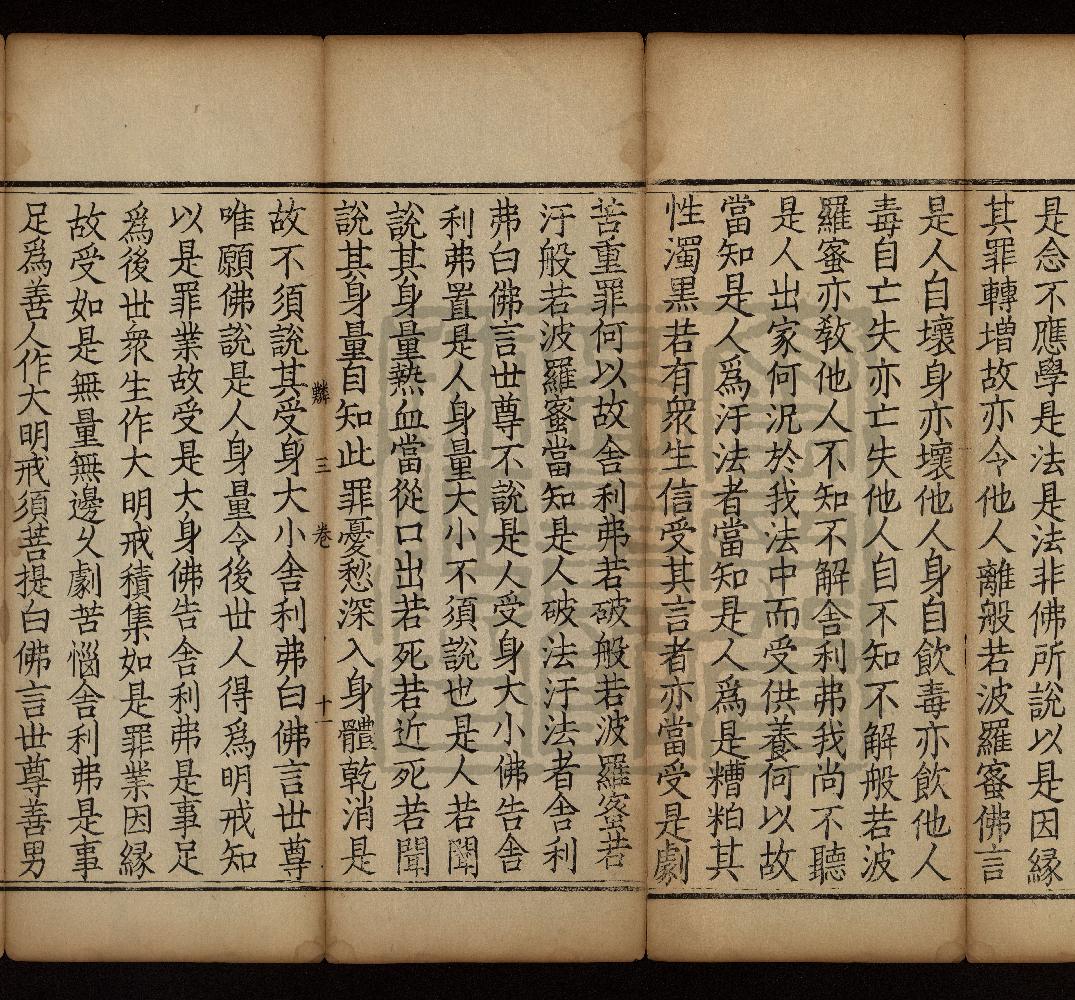 是念不應學是法是法非佛所說以是因緣
其罪轉增故亦令他人離般若波羅蜜佛言
是人自壞身亦壞他人身自飲毒亦飲他人
毒自亡失亦亡失他人自不知不解般若波
羅蜜亦教他人不知不解舍利弗我尚不聽
是人出家何況於我法中而受供養何以故
當知是人爲汙法者當知是人爲是糟粕其
性濁黑若有衆生信受其言者亦當受是劇
苦重罪何以故舍利弗若破般若波羅蜜若
汙般若波羅蜜當知是人破法汙法者舍利
弗白佛言世尊不說是人受身大小佛告舍
利弗置是人身量大小不須說也是人若聞
說其身量熱血當從口出若死若近死若聞
說其身量自知此罪憂愁深入身體乾消是
故不須說其受身大小舍利弗白佛言世尊
三 卷 十一
唯願佛說是人身量令後世人得爲明戒知
以是罪業故受是大身佛告舍利弗是事足
爲後世衆生作大明戒積集如是罪業因緣
故受如是無量無邊久劇苦惱舍利弗是事
足爲善人作大明戒須菩提白佛言世尊善男